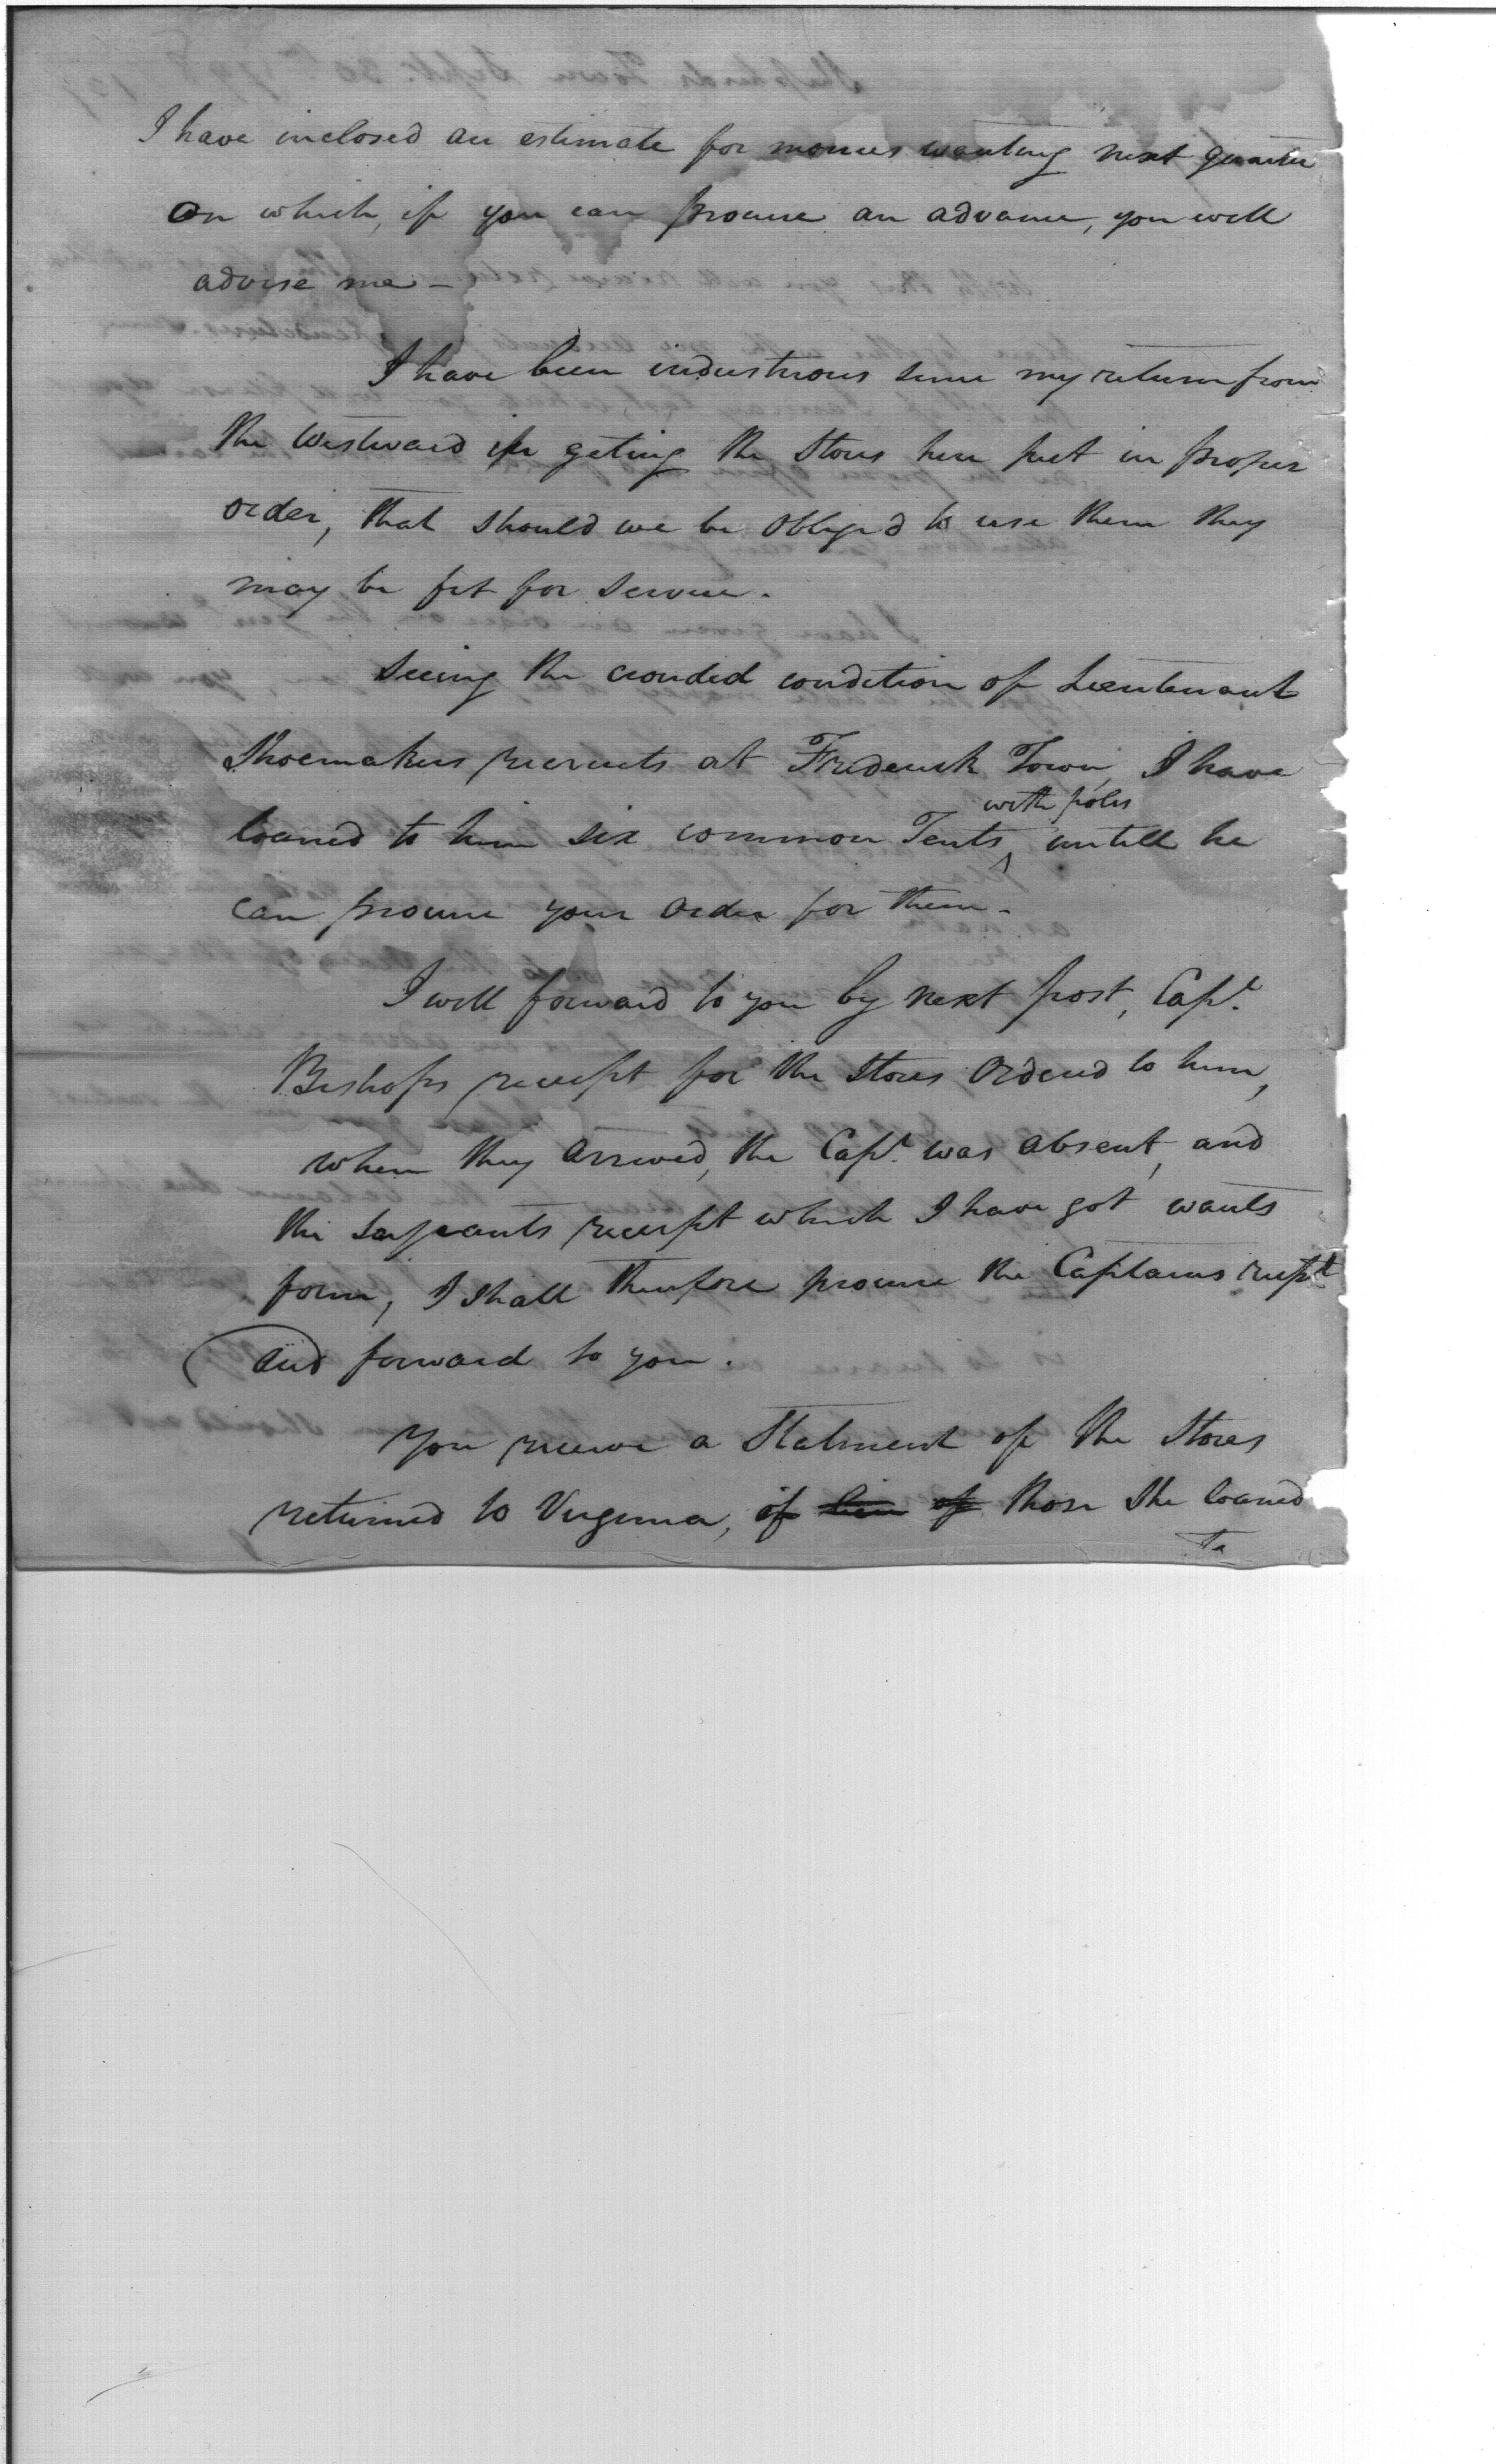 I have inclosed an estimate for monies wanting next quarter
on which, if you can procure an advance, you will
advise me —
I have been industrious since my return from
the Westward in geting the Stores here put in proper
order, that should we be obliged to use them they
may be fit for service.
Seeing the crouded condition of Lieutenant
Shoemakers recruits at Frederick Town, I have
with poles
loaned to him six common Tents ^ untill he
can procure your order for them —
I will forward to you by next post, Capt.
Bishops receipt for the Stores ordered to him,
when they arrived, the Capt. was absent, and
the Serjeants receipt which I have got wants
form, I shall therefore procure the Captains recipt
and forward to you.
You receive a Statment of the Stores
returned to Virginia, of lieu of those She loaned
To